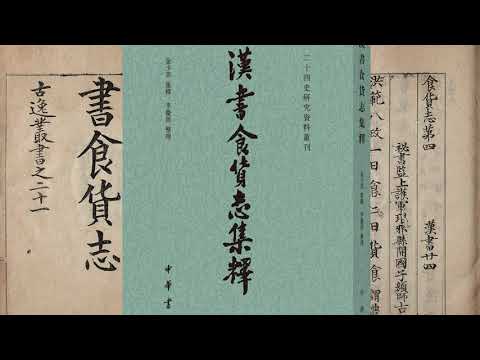 食貨志第四 漢書廿四
秘書監上護軍琅邪縣開國子顏師古
洪範八政一曰食二曰貨食謂
書食貨志集釋
二十四史研究資料叢刊
漢書食貨志集釋
金少英 集釋 李慶善 整理
中華書
書食貨志
古逸叢書之二十一